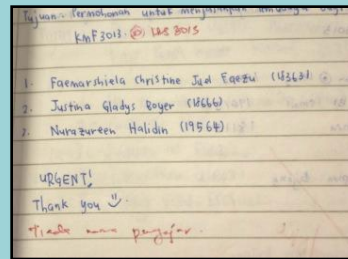 Tujuan: Permohonan untuk menjalankan temubual bagi
KMF3013 @ LKS 3013
1. Faemarshiela Christine Jud Eqezu (18363)
2. Justina Gladys Boyer (18666)
3. Nurazureen Halidin (19564)
URGENT!
Thank you
Tiada nama pengajar.